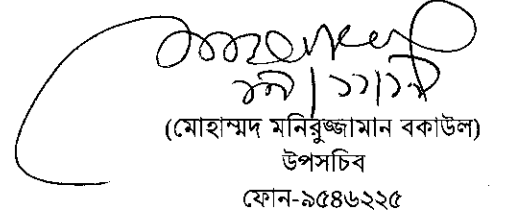 (মোহাম্মদ মনিরুজ্জামান বকাউল)
উপসচিব
ফোন-৯৫৪৬২২৫